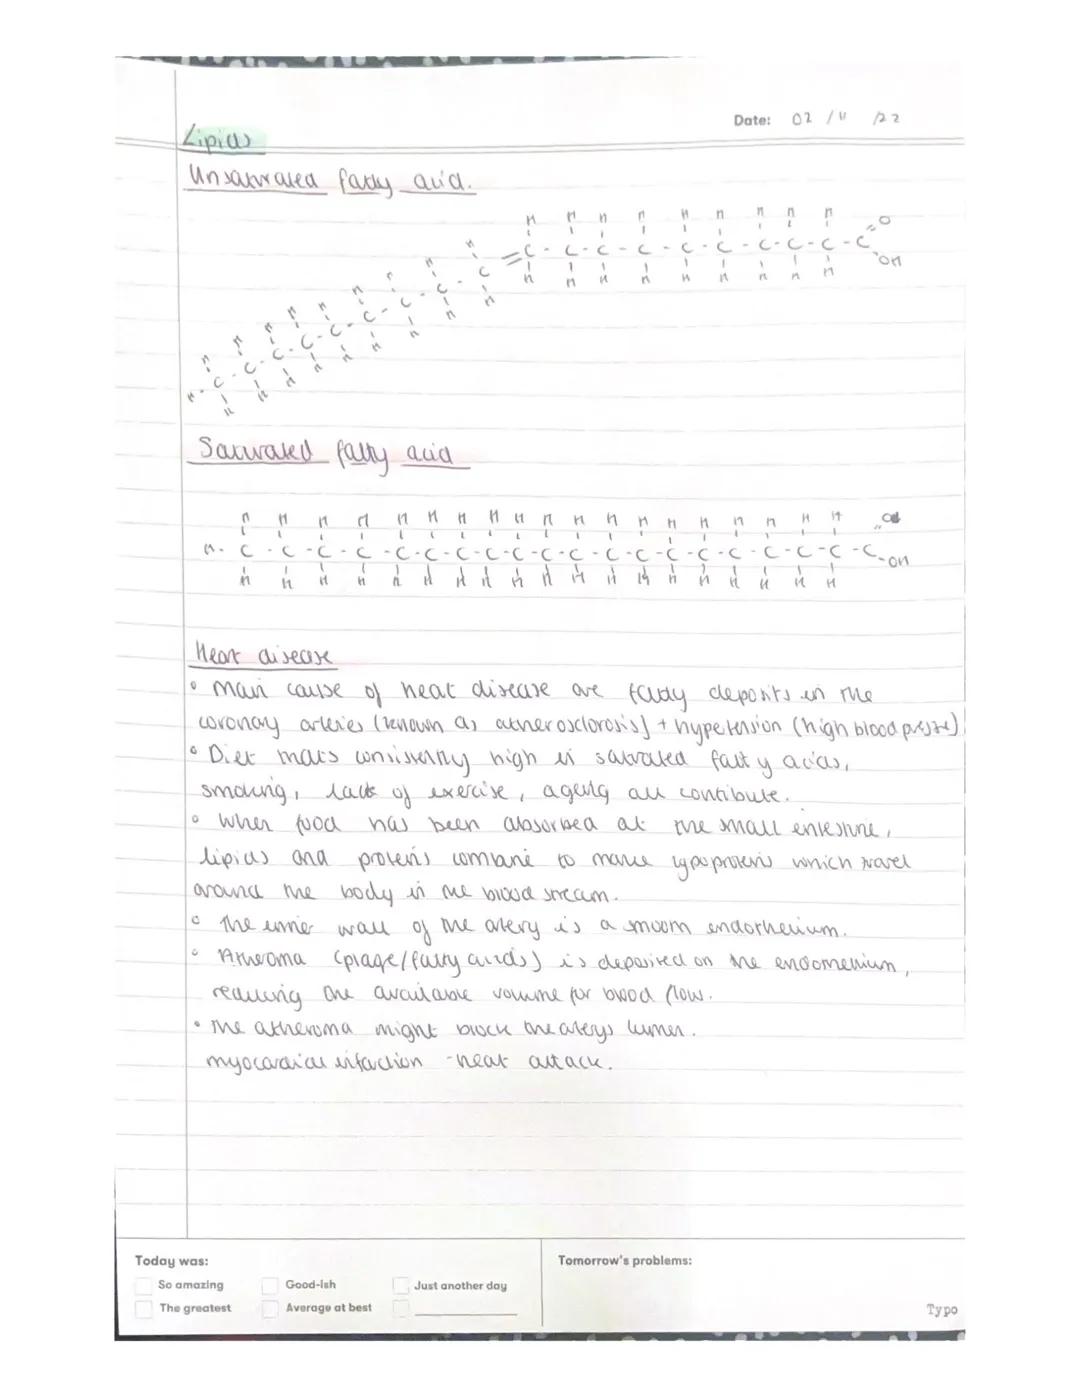 Date: 02 / 11 / 22
Lipids
Unsaturated fatty acid.
H H H H H H H H H O
C - C - C - C - C - C - C - C - C - C
OH
H H H H H H H H H
Saturated fatty acid
H H H H H H H H H H H H H H H H H H H
H - C - C - C - C - C - C - C - C - C - C - C - C - C - C - C - C - C - C - C - C - OH
H H H H H H H H H H H H H H H H H H H
Heart disease
• Main cause of heat disease are fatty deposits in the
coronary arteries (known as atherosclorosis) + hypetension (high blood pressre)
• Diet thats consistently high in saturated fatty acids,
smoking, lack of exercise, ageing all contibute.
• When food has been absorbed at the small intestine,
lipids and proteins combine to make lypoproteins which travel
around the body in the blood stream.
• The inner wall of the artery is a smooth endothelium.
• Atheroma (plaqe/fatty acids) is deposited on the endothelium,
reducing the available volume for blood flow.
• The atheroma might block the arterys lumen.
myocardial infaction - heat attack.
Today was:
So amazing Good-ish Just another day
The greatest Average at best
Tomorrow's problems:
Typo